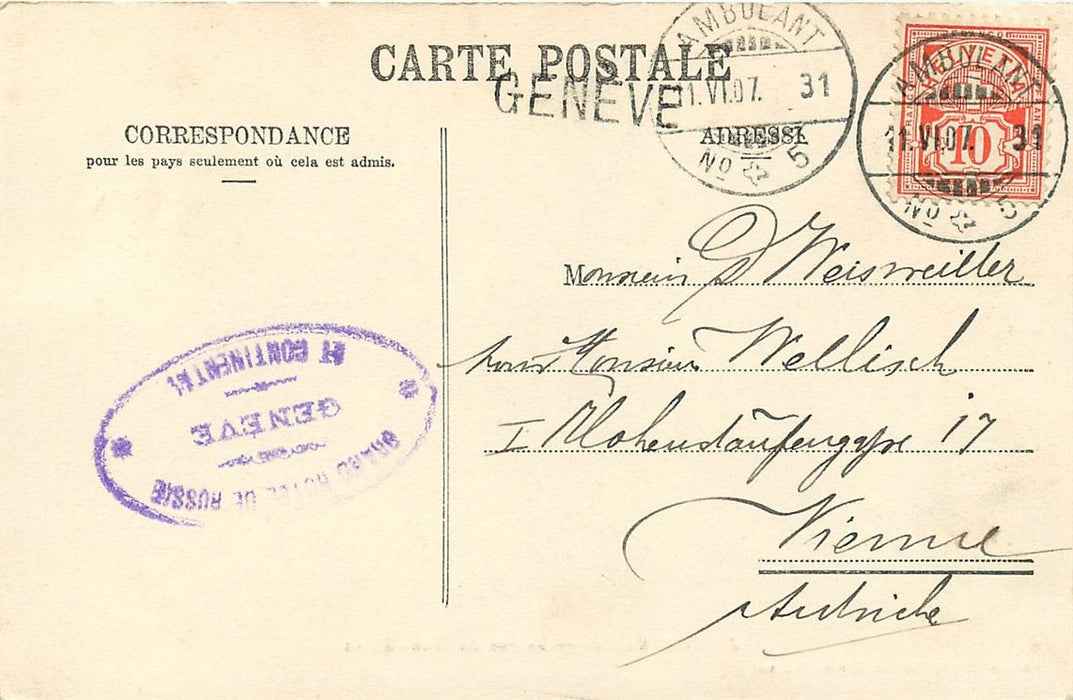 CARTE POSTALE
GENÈVE
AMBULANT
11.VI.07. 31
No 5
AMBULANT
11.VI.07. 31
No 5
FRANCO
10
CORRESPONDANCE
pour les pays seulement où cela est admis.
ADRESSE
Monsieur D Weisweiller
Monsieur Wellisch
I Hohenstaufengasse 17
Vienne
Autriche
GRAND HOTEL DE RUSSIE
GENÈVE
ET CONTINENTAL